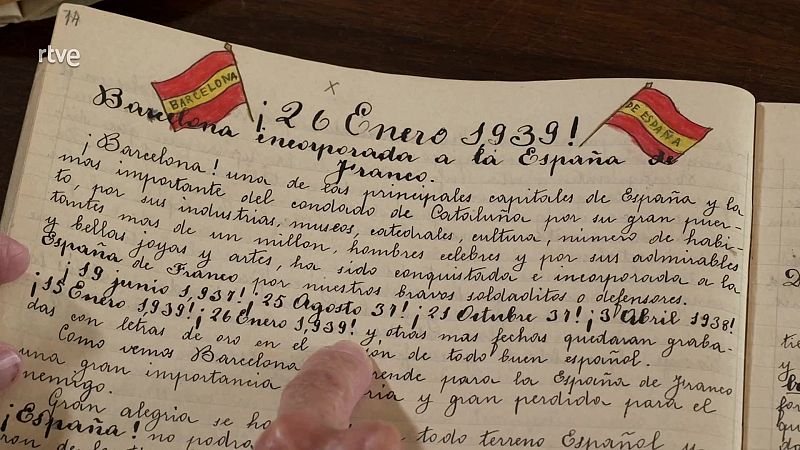 7A
rtve
BARCELONA
DE ESPAÑA
¡26 Enero 1939!
Barcelona incorporada a la España de
Franco.
¡Barcelona! una de las principales capitales de España y la
mas importante del condado de Cataluña por su gran puer-
to, por sus industrias, museos, catedrales, cultura, número de habi-
tantes mas de un millon, hombres celebres y por sus admirables
y bellas joyas y artes, ha sido conquistada e incorporada a la
España de Franco por nuestros bravos soldaditos o defensores.
¡19 junio 1,937! ¡25 Agosto 37! ¡21 Octubre 37! ¡3 Abril 1938!
¡15 Enero 1939! ¡26 Enero 1,939! y otras mas fechas quedaran graba-
das con letras de oro en el de todo buen español.
Como vemos Barcelona para la España de Franco
una gran importancia y gran perdida para el
enemigo.
Gran alegria se
¡España! no todo terreno Español y